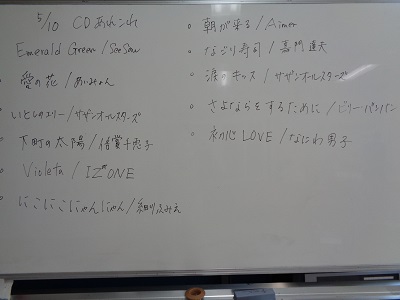 5/10 CDあれこれ
Emerald Green / See-Saw
愛の花 / あいみょん
いとしのエリー / サザンオールスターズ
下町の太陽 / 倍賞千恵子
Violeta / IZ*ONE
にこにこにゃんにゃん /
朝が来る / Aimer
なごり寿司 / 嘉門達夫
涙のキッス / サザンオールスターズ
さよならをするために / ビリーバンバン
初心LOVE / なにわ男子